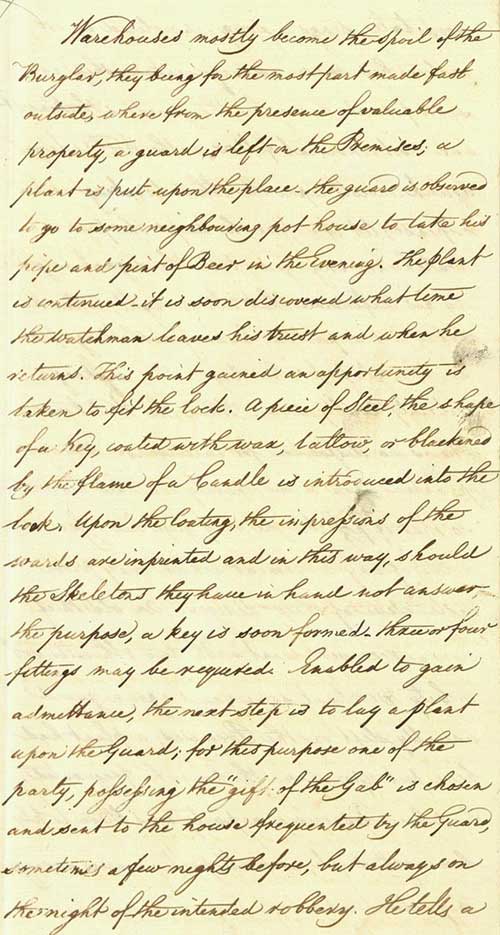 Warehouses mostly become the spoil of the
Burglar, they being for the most part made fast
outside, where from the presence of valuable
property, a guard is left on the Premises; a
plant is put upon the place - the guard is observed
to go to some neighbouring pot house to take his
pipe and pint of Beer in the Evening. The plant
is continued - it is soon discovered what time
the watchman leaves his trust and when he
returns. This point gained an apportunity is
taken to fit the lock. A piece of Steel, the shape
of a Key, coated with wax, tallow, or blackened
by the flame of a Candle is introduced into the
lock. Upon the coating, the impressions of the
wards are imprinted and in this way, should
the Skeletons they have in hand not answer
the purpose, a key is soon formed - three or four
fittings may be required. Enabled to gain
admittance, the next step is to lay a plant
upon the Guard; for this purpose one of the
party, possessing the "gift of the Gab" is chosen
and sent to the house frequented by the Guard,
sometimes a few nights before, but always on
the night of the intended robbery. He tells a